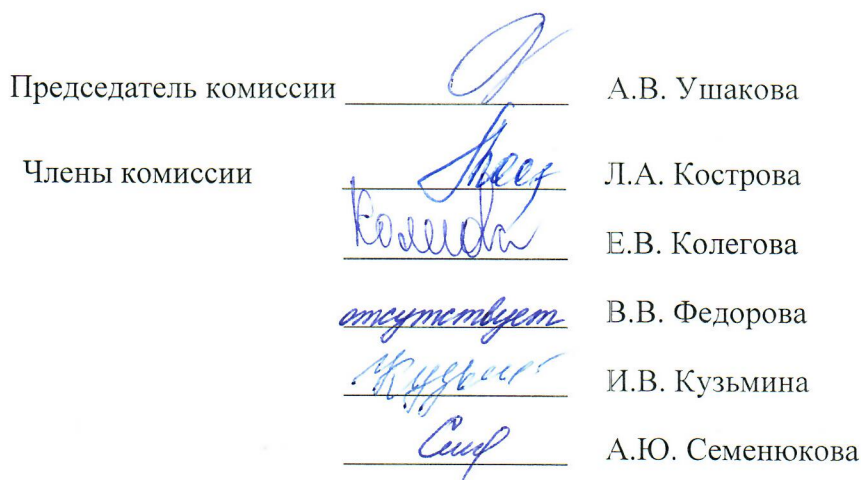 Председатель комиссии А.В. Ушакова
Члены комиссии Л.А. Кострова
Е.В. Колегова
отсутствует В.В. Федорова
И.В. Кузьмина
А.Ю. Семенюкова